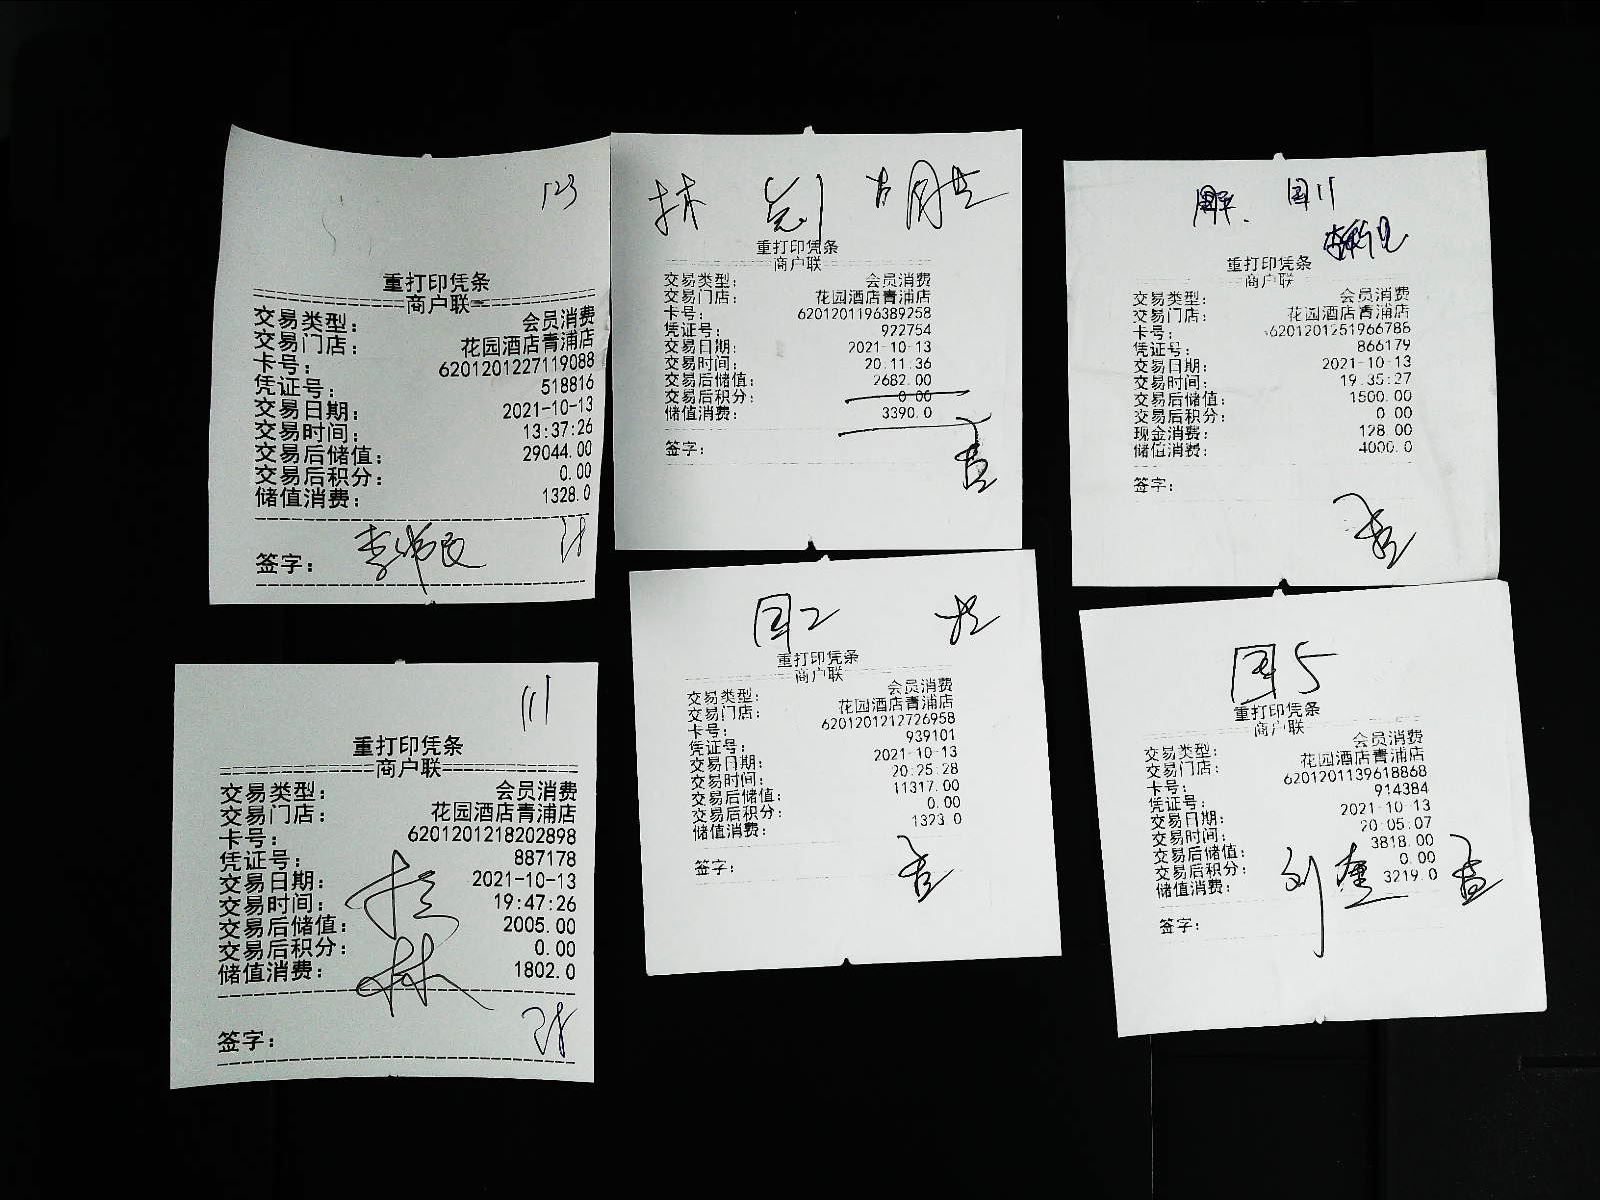 123
重打印凭条
商户联
交易类型： 会员消费
交易门店： 花园酒店青浦店
卡号： 6201201227119088
凭证号： 518816
交易日期： 2021-10-13
交易时间： 13:37:26
交易后储值： 29044.00
交易后积分： 0.00
储值消费： 1328.0
签字：
林
重打印凭条
商户联
交易类型： 会员消费
交易门店： 花园酒店青浦店
卡号： 6201201196389258
凭证号： 922754
交易日期： 2021-10-13
交易时间： 20:11:36
交易后储值： 2682.00
交易后积分： 0.00
储值消费： 3390.0
签字：
重打印凭条
商户联
交易类型： 会员消费
交易门店： 花园酒店青浦店
卡号： 6201201251966788
凭证号： 866179
交易日期： 2021-10-13
交易时间： 19:35:27
交易后储值： 1500.00
交易后积分： 0.00
现金消费： 128.00
储值消费： 4000.0
签字：
111
重打印凭条
商户联
交易类型： 会员消费
交易门店： 花园酒店青浦店
卡号： 6201201218202898
凭证号： 887178
交易日期： 2021-10-13
交易时间： 19:47:26
交易后储值： 2005.00
交易后积分： 0.00
储值消费： 1802.0
林
签字：
国2
重打印凭条
商户联
交易类型： 会员消费
交易门店： 花园酒店青浦店
卡号： 6201201212726958
凭证号： 939101
交易日期： 2021-10-13
交易时间： 20:25:28
交易后储值： 11317.00
交易后积分： 0.00
储值消费： 1323.0
签字：
国5
重打印凭条
商户联
交易类型： 会员消费
交易门店： 花园酒店青浦店
卡号： 6201201139618868
凭证号： 914384
交易日期： 2021-10-13
交易时间： 20:05:07
交易后储值： 3818.00
交易后积分： 0.00
储值消费： 3219.0
签字：